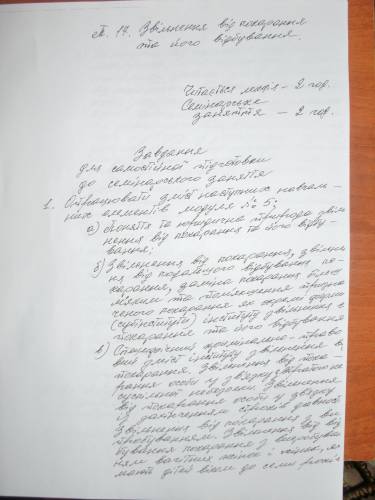 Т. 17. Звільнення від покарання
та його відбування.
Читається лекція – 2 год.
Семінарське
заняття – 2 год.
Завдання
для самостійної підготовки
до семінарського заняття
1. Опрацювати зміст наступних навчаль-
них елементів модуля № 5:
а) Поняття та юридична природа звіль-
нення від покарання та його відбу-
вання;
б) Звільнення від покарання, звільнен-
ня від подальшого відбування по-
карання, заміна покарання більш
м'яким та пом'якшення призна-
ченого покарання як окремі форми
(субінститути) інституту звільнення з
покарання та його відбування
в) Специфічний кримінально-право-
вий зміст інституту звільнення від
покарання. Звільнення від пока-
рання особи у зв'язку з втратою
суспільної небезпеки. Звільнення
від покарання особи у зв'язку
із закінченням строків давності
Звільнення від покарання з ви-
пробуванням. Звільнення від від-
бування покарання з випробуван-
ням вагітних жінок і жінок, які
мають дітей віком до семи років